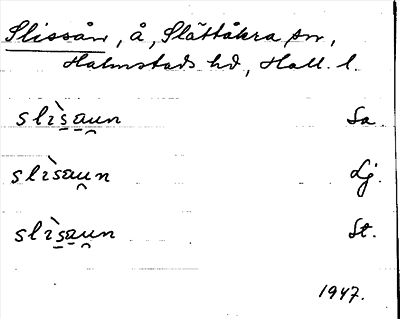 Slissån, å, Slättåkra sn,
Halmstads hd, Hall. l.
slìsaun Sa
slìsaun Lj.
slìsaun St.
1947.